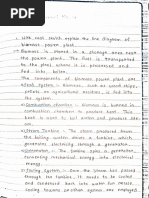 with neat sketch explain the line diagram of
biomass power plant.
Biomass is stored in a storage area near
the power plant. The fuel is transported
to the plant where is dried and
fed into boiler.
The components of biomass power plant are
Feed System - Biomass, such as wood chips,
pellets, or agricultural residues, is fed into
the system.
Combustion chamber - Biomass is burned in
a combustion chamber or furnace to produce
heat.
Steam Turbine - The steam produced from
the boiling water drives a turbine, which
generates electricity through a generator.
Generator - The turbine spins a generator,
converting mechanical energy into electrical
energy.
Cooling System - Once the steam has passed
through the turbine, it needs to be cooled
and condensed back into water for reuse.